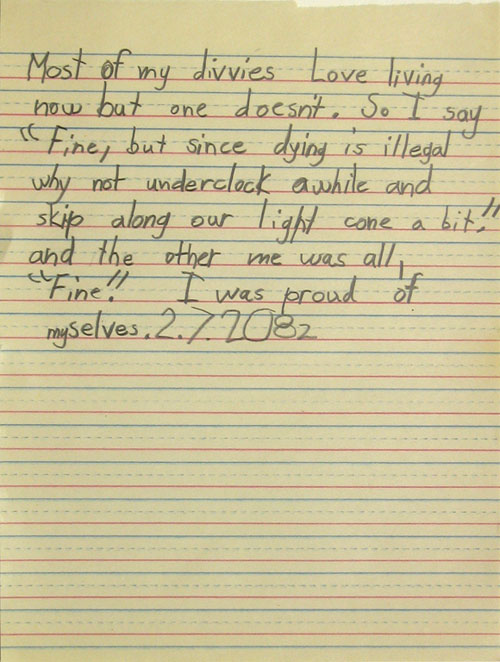 Most of my divvies Love living
now but one doesn't. So I say
“Fine, but since dying is illegal
why not underclock awhile and
skip along our light cone a bit.”
and the other me was all,
“Fine.” I was proud of
myselves. 2.7.2082